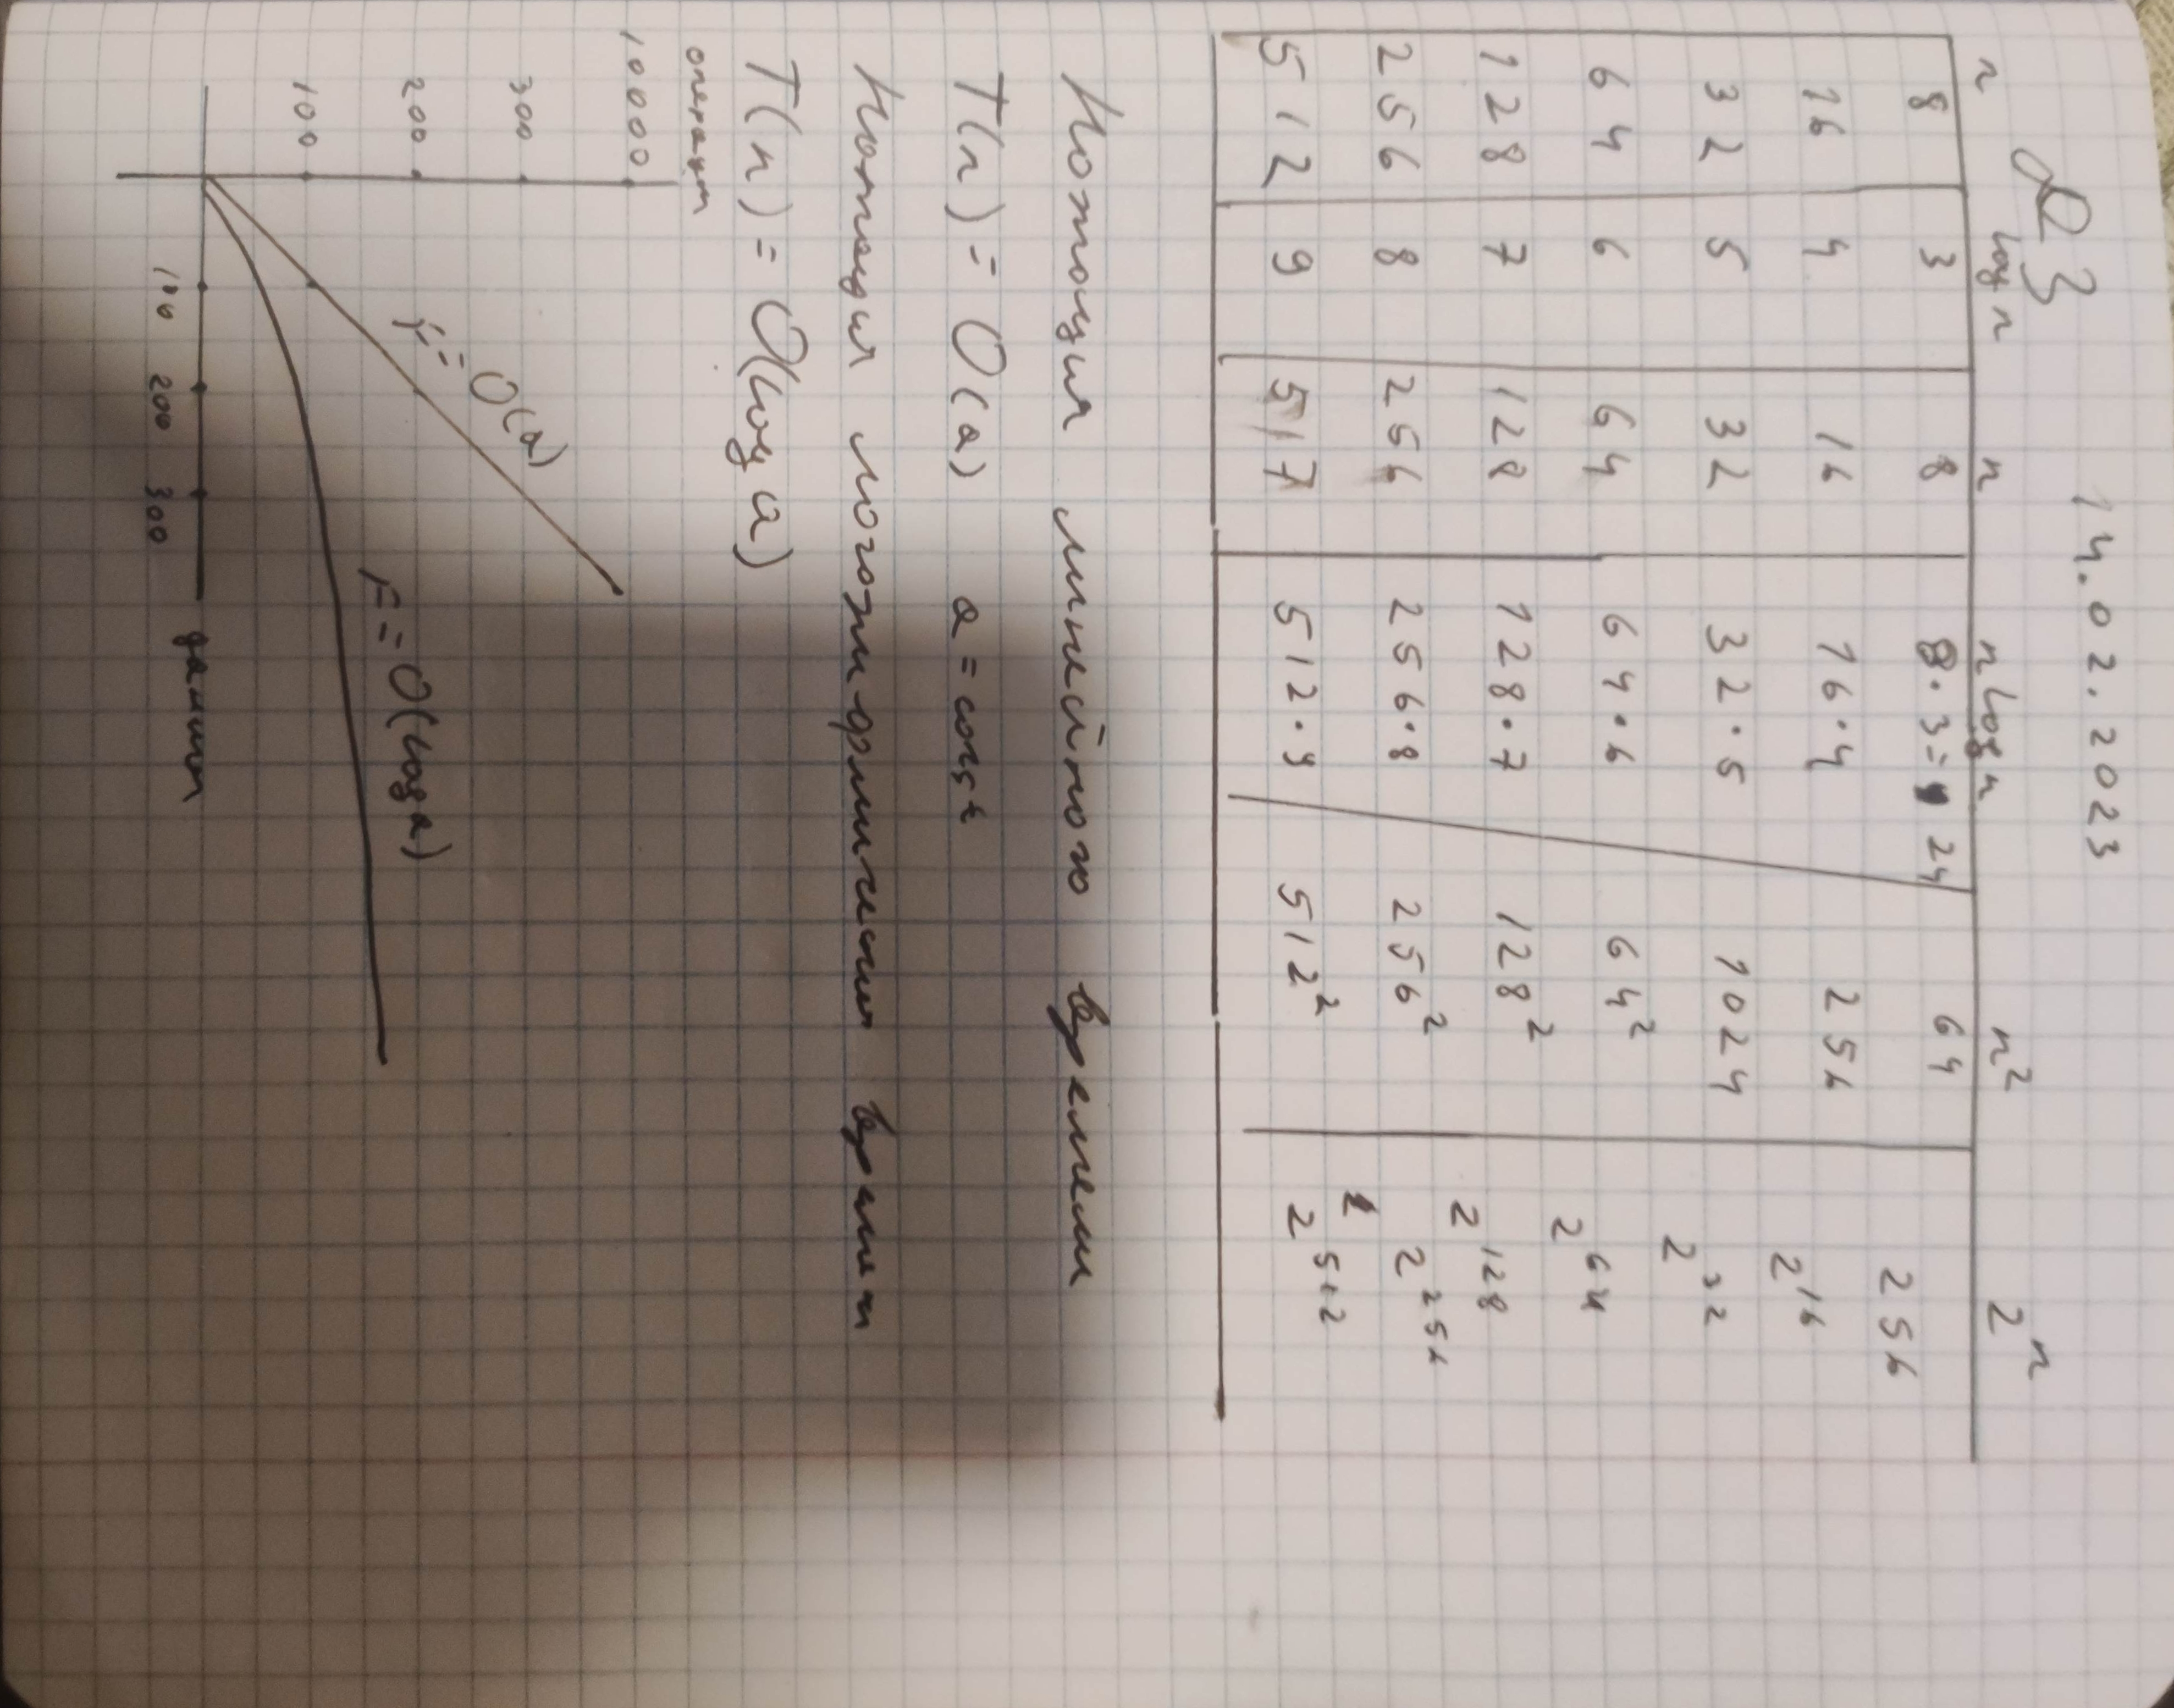 14.02.2023
ДЗ
n log n n n log n n² 2ⁿ
8 3 8 8·3= 24 64 256
16 4 16 16·4 256 2¹⁶
32 5 32 32·5 1024 2³²
64 6 64 64·6 64² 2⁶⁴
128 7 128 128·7 128² 2¹²⁸
256 8 256 256·8 256² 2²⁵⁶
512 9 517 512·9 512² 2⁵¹²
Нотация линейного времени
T(n) = O(a) a = const
Нотация времени
T(n) = O(log a)
10000
300
F = O(a)
200
F = O(log a)
100
100 200 300